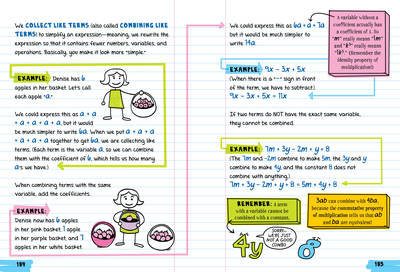 We COLLECT LIKE TERMS (also called COMBINING LIKE
TERMS) to simplify an expression—meaning, we rewrite the
expression so that it contains fewer numbers, variables, and
operations. Basically, you make it look more "simple."
EXAMPLE: Denise has 6
apples in her basket. Let's call
each apple "a."
We could express this as a + a
+ a + a + a + a, but it would
be much simpler to write 6a. When we put a + a + a
+ a + a + a together to get 6a, we are collecting like
terms. (Each term is the variable a, so we can combine
them with the coefficient of 6, which tells us how many
a's we have.)
When combining terms with the same
variable, add the coefficients.
EXAMPLE:
Denise now has 6 apples
in her pink basket, 1 apple
in her purple basket, and 7
apples in her white basket.
184
We could express this as 6a + a + 7a
but it would be much simpler to
write 14a.
A variable without a
coefficient actually has
a coefficient of 1. So
"m" really means "1m"
and "k³" really means
"1k³." (Remember the
identity property of
multiplication!)
EXAMPLE: 9x - 3x + 5x
(When there is a "-" sign in front
of the term, we have to subtract.)
9x - 3x + 5x = 11x
If two terms do NOT have the exact same variable,
they cannot be combined.
EXAMPLE: 7m + 3y - 2m + y + 8
(The 7m and -2m combine to make 5m, the 3y and y
combine to make 4y, and the constant 8 does not
combine with anything.)
7m + 3y - 2m + y + 8 = 5m + 4y + 8
REMEMBER: A term
with a variable cannot be
combined with a constant.
3ab can combine with 4ba,
because the commutative property
of multiplication tells us that ab
and ba are equivalent!
SORRY...
WE'RE JUST
NOT A GOOD
COMBO.
4y 8
185